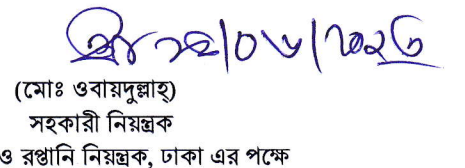 ২৪|০৮|২০২৩
(মোঃ ওবায়দুল্লাহ্)
সহকারী নিয়ন্ত্রক
ও রপ্তানি নিয়ন্ত্রক, ঢাকা এর পক্ষে